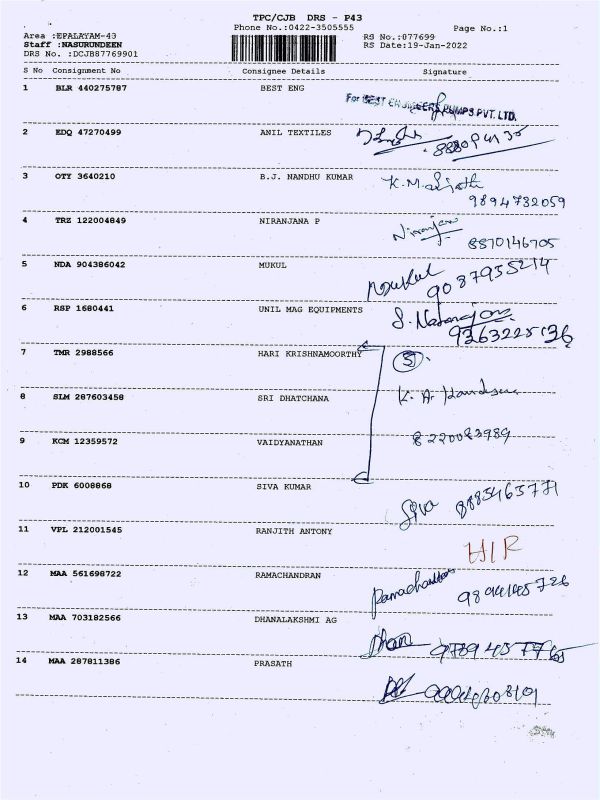 TPC/CJB DRS - P43
Phone No.:0422-3505555
Page No.:1
Area :EPALAYAM-43
RS No.:077699
Staff :NASURUNDEEN
RS Date:19-Jan-2022
DRS No. :DCJB87769901
S No Consignment No Consignee Details Signature
1 BLR 440275787 BEST ENG
For BEST ENGINEERS PUMPS PVT. LTD.
2 EDQ 47270499 ANIL TEXTILES
3 OTY 3640210 B.J. NANDHU KUMAR
9894732059
4 TRZ 122004849 NIRANJANA P
Niranjana
8870146705
5 NDA 904386042 MUKUL
Mukul
9087955214
6 RSP 1680441 UNIL MAG EQUIPMENTS
9363225136
7 TMR 2988566 HARI KRISHNAMOORTHY
5
8 SLM 287603458 SRI DHATCHANA
K. A.
9 KCM 12359572 VAIDYANATHAN
8220083989
10 PDK 6008868 SIVA KUMAR
Siva
11 VPL 212001545 RANJITH ANTONY
H/R
12 MAA 561698722 RAMACHANDRAN
Ramachandran
13 MAA 703182566 DHANALAKSHMI AG
Dhan
14 MAA 287811386 PRASATH